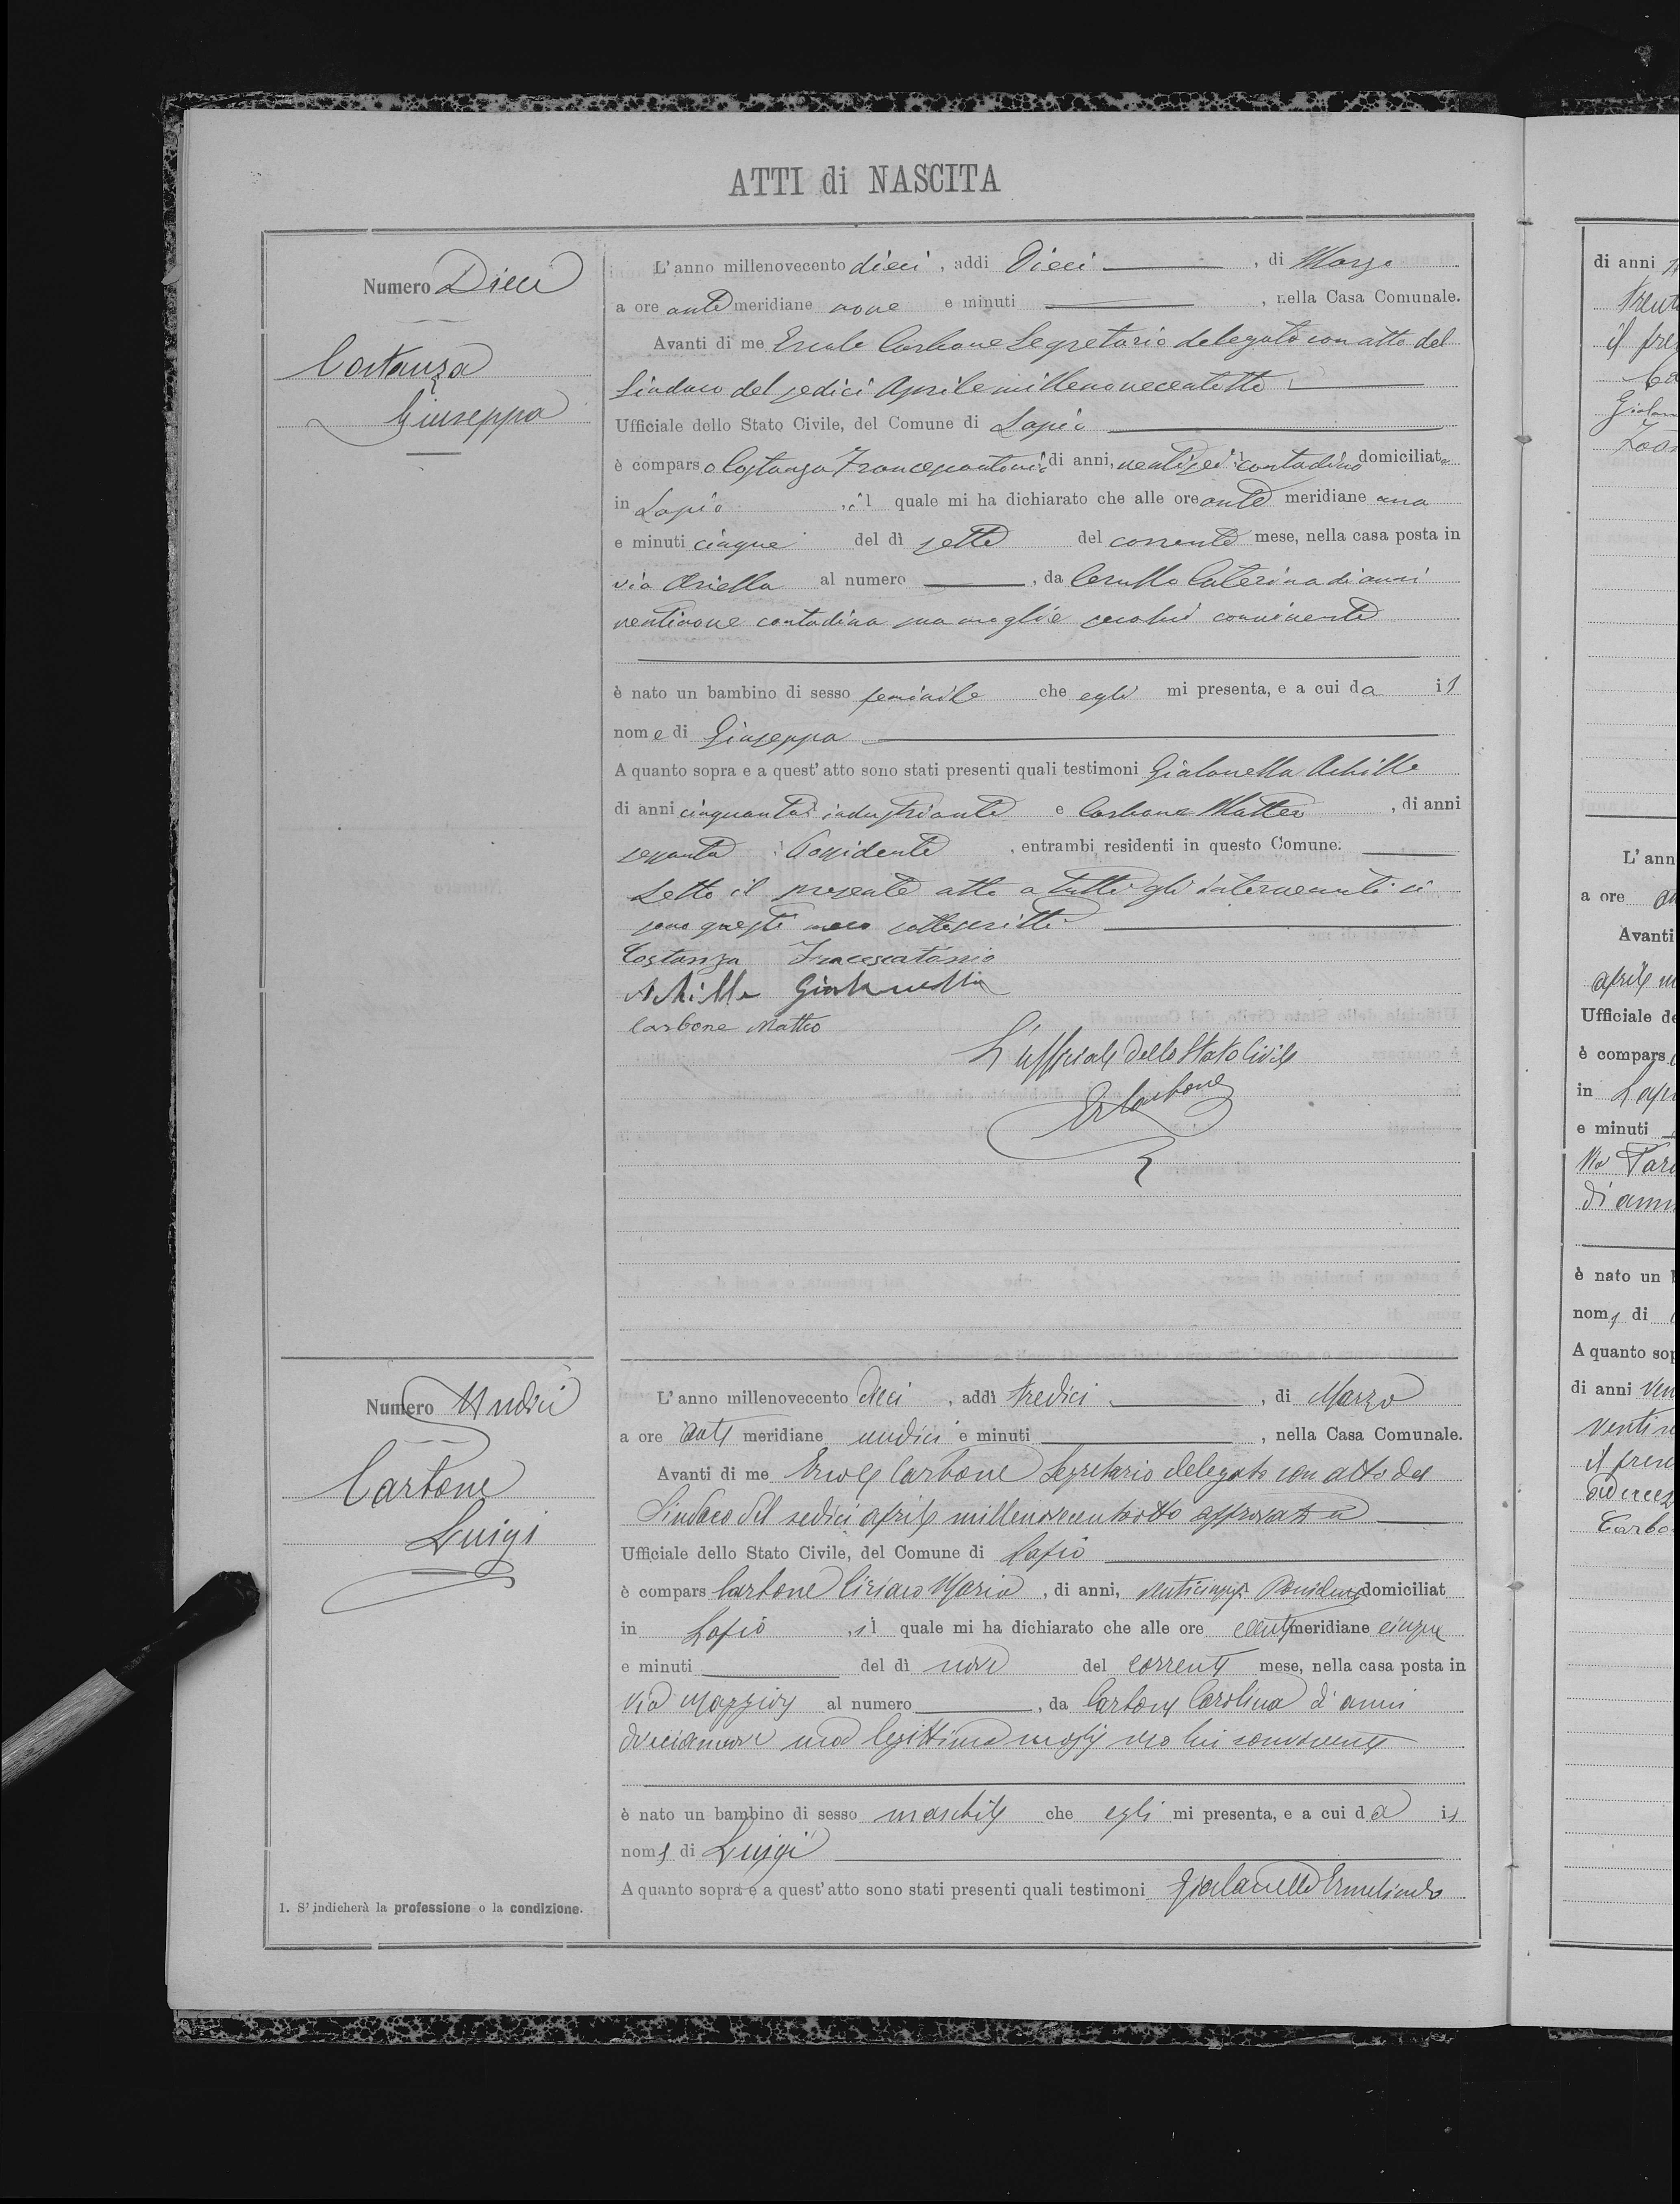 ATTI di NASCITA
Numero Dieci
Costanza
Giuseppa
L'anno millenovecento dieci, addi Dieci, di Marzo
a ore ante meridiane nove e minuti, nella Casa Comunale.
Avanti di me Ercole Carbone Segretario delegato con atto del
Sindaco del sedici Aprile millenovecentotto
Ufficiale dello Stato Civile, del Comune di Lapio
è comparso Costanza Francescantonio di anni, ventisei contadino domiciliato
in Lapio, il quale mi ha dichiarato che alle ore ante meridiane una
e minuti cinque del dì sette del corrente mese, nella casa posta in
via Ariella al numero, da Cerullo Caterina di anni
ventinove contadina sua moglie secolui convivente
è nato un bambino di sesso feminile che egli mi presenta, e a cui da il
nome di Giuseppa
A quanto sopra e a quest'atto sono stati presenti quali testimoni Gialanella Achille
di anni cinquanta industriante e Carbone Matteo, di anni
sessanta Possidente, entrambi residenti in questo Comune.
Letto il presente atto a tutti gli intervenuti si
sono questi meco sottoscritti
Costanza Francescatonio
Achille Gialanella
Carbone Matteo
L'ufficiale dello Stato Civile
Er Carbone
Numero Undici
Carbone
Luigi
L'anno millenovecento dieci, addì tredici, di Marzo
a ore ante meridiane undici e minuti, nella Casa Comunale.
Avanti di me Ercole Carbone Segretario delegato con atto del
Sindaco del sedici aprile millenovecentootto approvato
Ufficiale dello Stato Civile, del Comune di Lapio
è compars Carbone Ciriaco Maria, di anni, venticinque Possidente domiciliat
in Lapio, il quale mi ha dichiarato che alle ore ante meridiane cinque
e minuti del dì nove del corrente mese, nella casa posta in
Via Maggiore al numero, da Carbone Carolina di anni
diciannove sua legittima moglie seco lui convivente
è nato un bambino di sesso maschile che egli mi presenta, e a cui da il
nome di Luigi
A quanto sopra e a quest'atto sono stati presenti quali testimoni Gialanella Ermelindo
1. S'indicherà la professione o la condizione.
di anni
il pre
L'ann
a ore
Avanti
aprile
Ufficiale de
è compars
in Lapi
e minuti
Via
di ann
è nato un
nome di
A quanto sop
di anni ven
Carbo